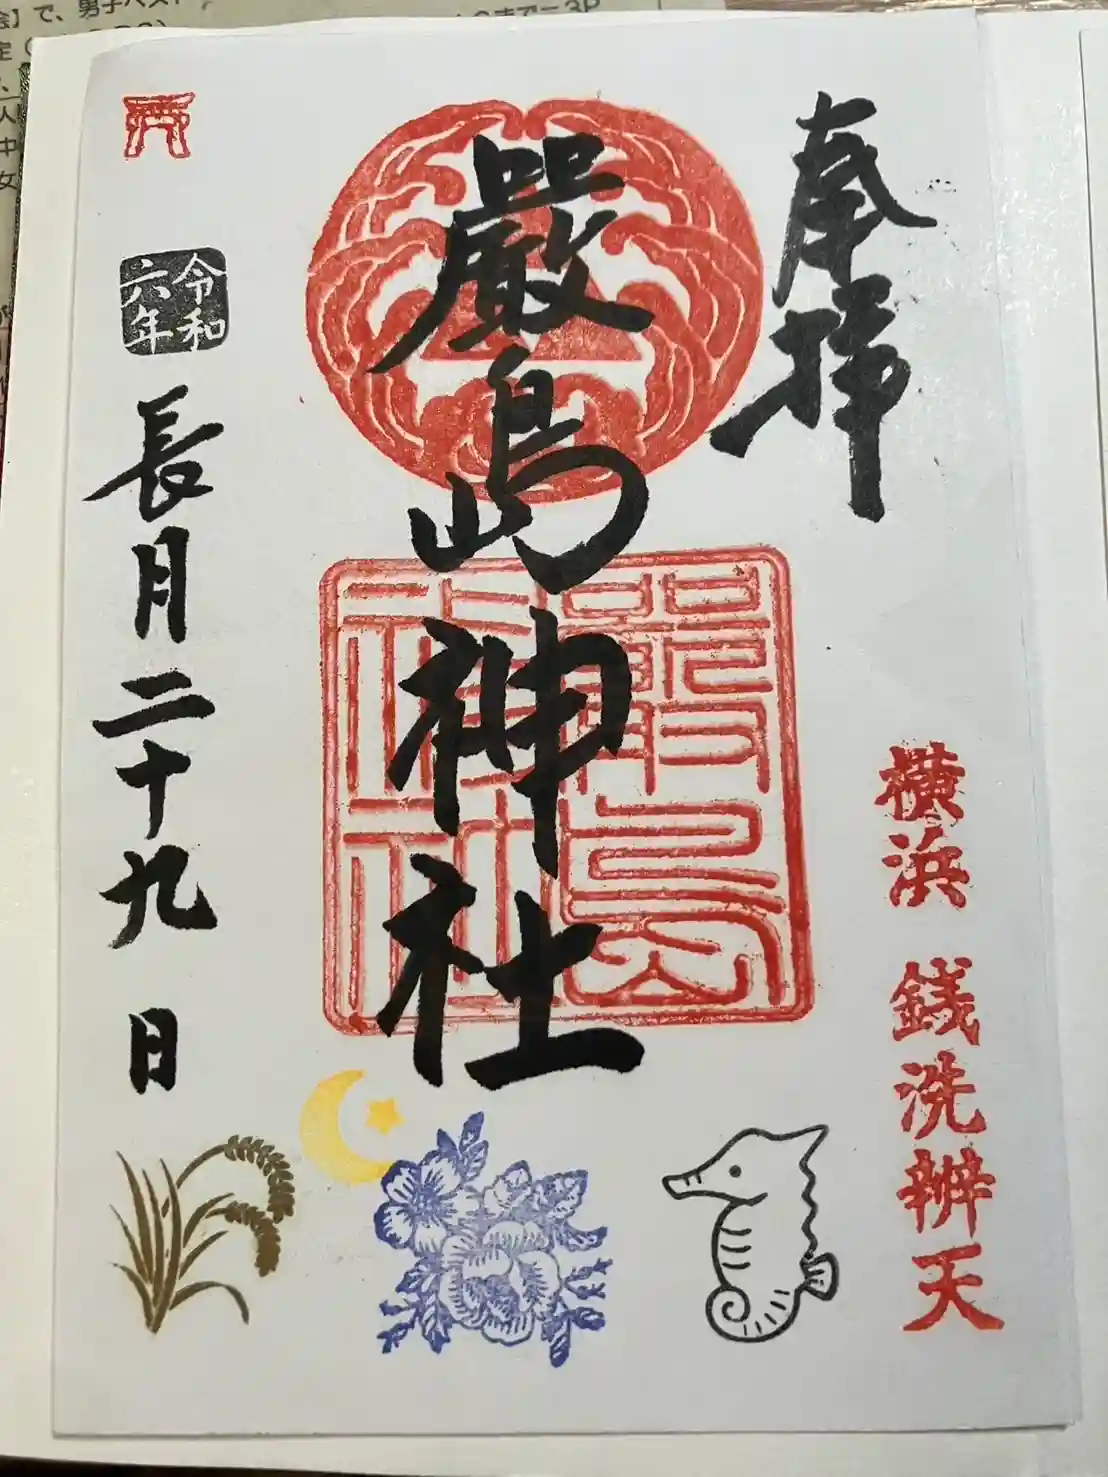 奉拝
横浜 銭洗辨天
嚴島神社
嚴島
神社
令和
六年
長月二十九日